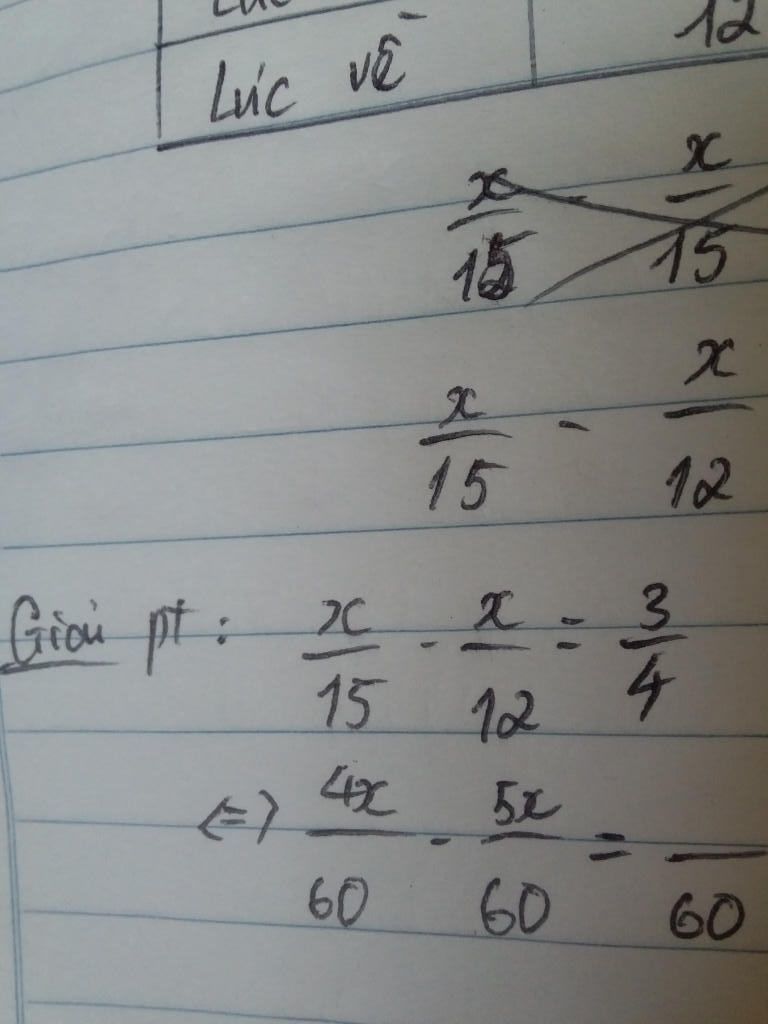 12
Lúc về
x/15 - x/15
x/15 - x/12
Giải pt: x/15 - x/12 = 3/4
<=> 4x/60 - 5x/60 = /60